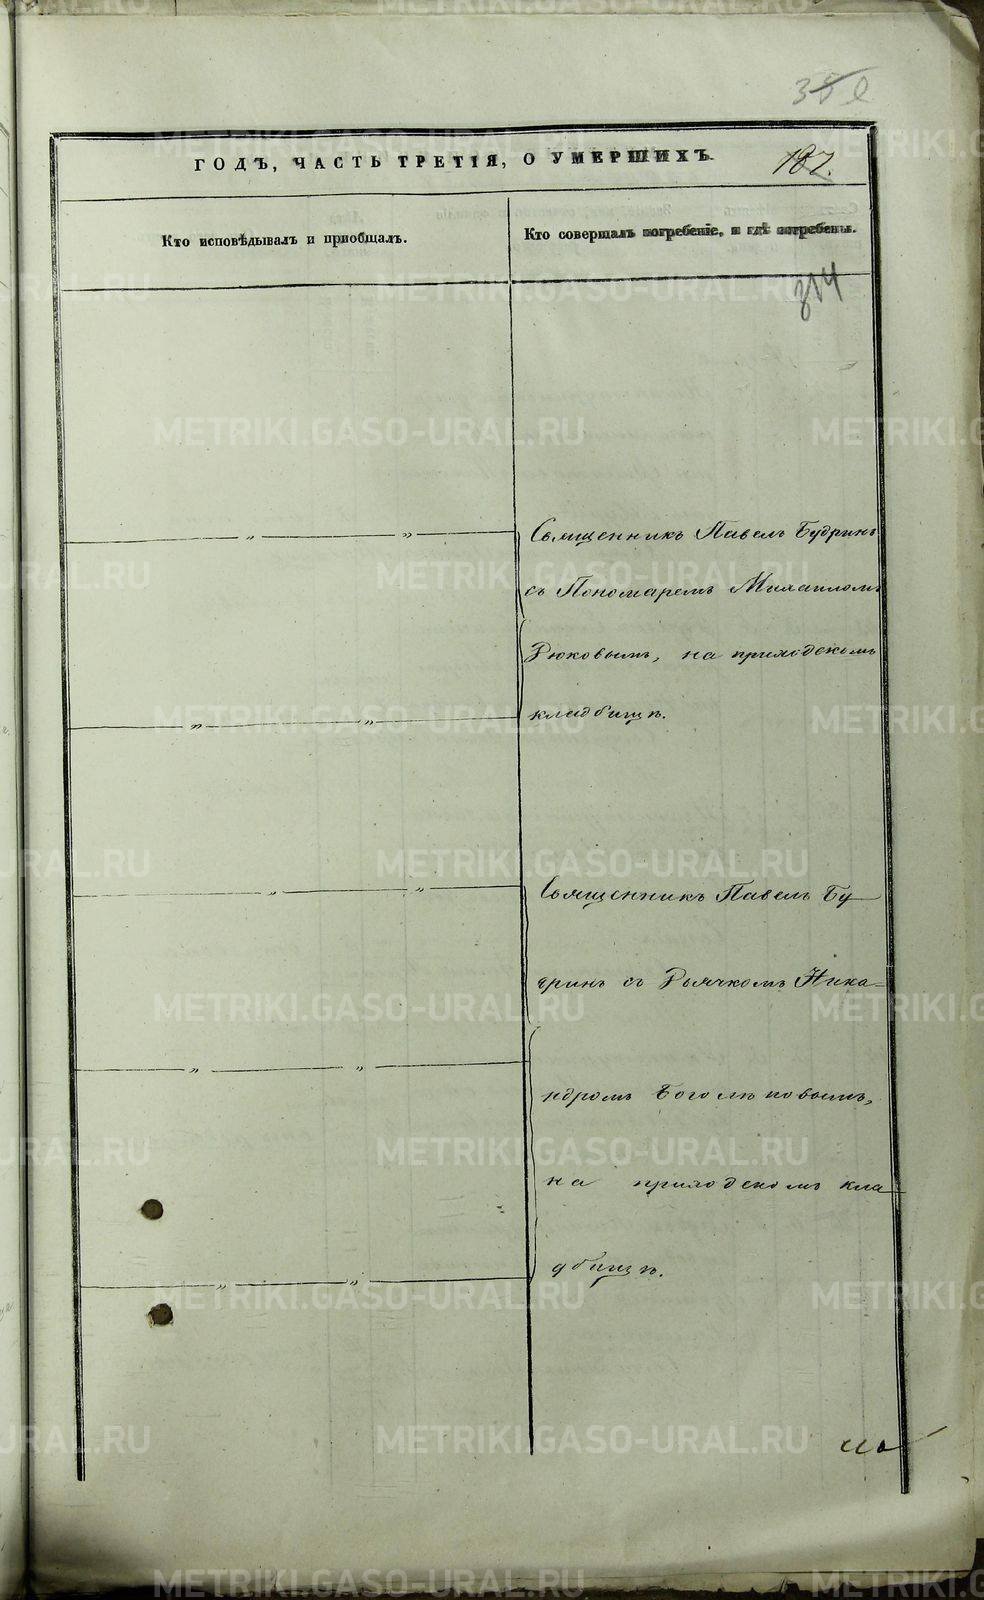 ГОДЪ, ЧАСТЬ ТРЕТІЯ, О УМЕРШИХЪ.
187.
Кто исповѣдывалъ и пріобщалъ.
Кто совершалъ погребеніе, и гдѣ погребены.
314
Священникъ Павелъ Будринъ
съ Пономаремъ Михаиломъ
Рюковымъ, на приходскомъ
кладбищѣ.
Священникъ Павелъ Бу
дринъ съ Дьячкомъ Ника=
ндромъ Боголѣповымъ,
на приходскомъ кла
дбищѣ.
METRIKI.GASO-URAL.RU